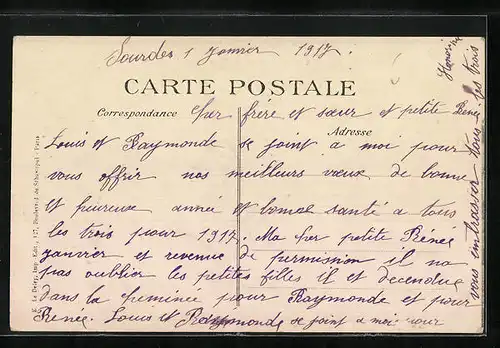 Lourdes 1 Janvier 1917.
CARTE POSTALE
Correspondance
Adresse
Cher frère et sœur et petite Renée
Louis et Raymonde se joint a moi pour
vous offrir nos meilleurs vœux de bonne
et heureuse année et bonne santé a tous
les trois pour 1917. Ma cher petite Renée
janvier et revenue de permission il na
pas oublier les petites filles il et decendue
dans la cheminée pour Raymonde et pour
Renée. Louis et Raymonde se joint a moi pour
vous embrasser tous les trois
Le Deley, Imp.-Edit., 127, Boulevard de Sébastopol, Paris